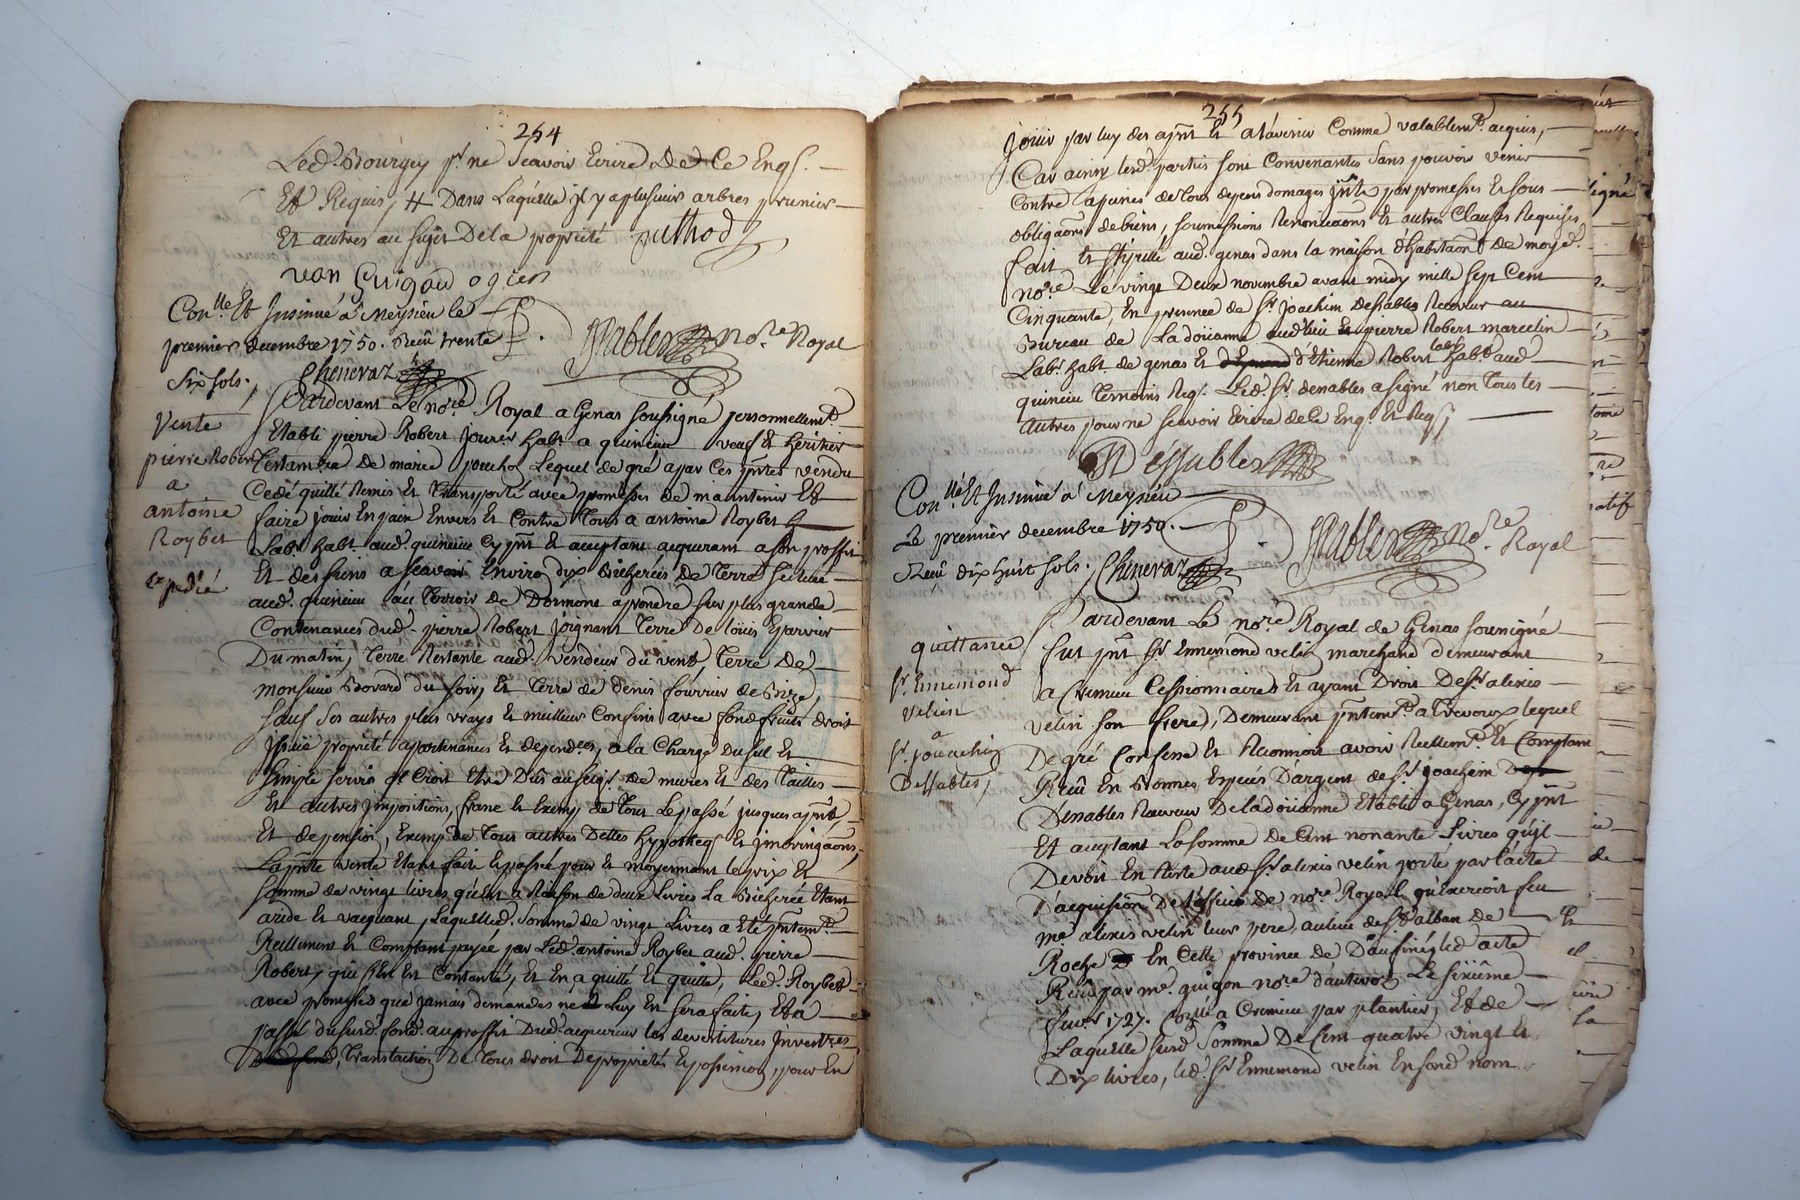 254
Led. Bourgey pr. ne Scavoir Ecrire De Ce Enq.
Et Requis, # Dans Laquelle il y a plusieur arbres prunier
Et autres au sujet De la propriété puthod
van Guigou ogier
Con.lle Et Insinué a Meysieu le
premier decembre 1750. Reçû trente
Six sols. Cheneraz
No.re Royal
Vente
pierre Robert
a
antoine
Roybet
Expedié
Pardevant Le No.re Royal a Genas soussigné personnellemt.
Etabli pierre Robert Jour.er habt. a quincieu veuf Et heritier
Testam.re de marie pouchol Lequel de gré a par Ces pntes vendu
Cedé quitté Remis Et Transporté avec promesses de maintenir Et
faire jouir En paix Envers Et Contre Tous a antoine Roybet
Labr. habt. aud. quincieu Cy pnt Et acceptant acquerant a son proffit
Et des siens a Scavoir Environ dix Bicherées de Terre située
aud. quincieu au Terroir de Dormont a prendre sur plus grande
Contenances dud. pierre Robert joignant Terre De Loüis Garnier
Du matin, Terre Restante aud. vendeur du vent, Terre De
monsieur Bovard du soir, Et Terre de denis fourrier de Bize,
Sauf Ses autres plus vrays Et meilleur Confins avec fond fruits droit
Issüe proprieté appartenances Et dependces, a la Charge Du Sel Et
Simple servis qd Croit Etre Dus au Seigr. de mures Et des Tailles
Et autres Impositions, franc Et Exemp de Tous Le passé jusques a pnt
Et de pension, Exemp De Tous autres Dettes hypotheq Et Imbringaons,
La pnte vente Etant faite Et passée pour Et moyennant le prix Et
Somme de vingt livres qu'Est a Raison de deux Livres La Bicherée Etant
aride Et vacquant, Laquelled. Somme de vingt Livres a Eté pntemt.
Reellement Et Comptant payée par Led. antoine Roybet aud. pierre
Robert, qui s'En Est Contanté, Et En a quitté Et quitte, Led. Roybet
avec promesses que jamais demandes ne Luy En sera faite, Et a
passé du susd. fond au proffit Dud. acquereur Les devestitures Investres
Translaction De Tous droit De proprieté Et possession pour En
255
Jouir par luy des a pnt Et a l'avenir Comme valablemt. acquis,
Car ainsy Lesd. partis sont Convenantes Sans pouvoir venir
Contre a peines de tous depens domages Jnts par promesses Et sous
obligaons de biens, soumissions Renonciaons Et autres Clauses Requises,
fait Et Stipullé aud. genas dans la maison d'habitaon de moyd.
no.re Le vingt Deux novembre avant midy mille sept Cent
Cinquante, En presence de Sr. Joachim Dessables Receveur au
Bureau de La doüanne aud. lieu pierre Robert marcelin
Labr. habt de genas Et d'Etienne Robert Labr habt aud.
quincieu Temoins Req. Led. Sr. denables a signé non Tous Les
autres pour ne Scavoir Ecrire de Ce Enq. Et Req
Dessables
Con.lle Et Insinué a Meysieu
Le premier decembre 1750.
Reçû dix huit sols. Cheneraz
No.re Royal
quittance
Sr. Ennemond
Velin
a
Sr. Jouachin
Dessables,
Pardevant Le no.re Royal de Genas soussigné
fut pnt Sr. Ennemond velin marchand demeurant
a Cremieu Cessionnaire Et ayant Droit De Sr. alexis
velin son frere, Demeurant pntemt. a Trevoux lequel
De gré Confesse Et Reconnoit avoir Reellemt. Et Comptant
Reçû En Bonnes Especes D'argent de Sr. joachim
Denables Receveur De la doüanne Etabli a Genas, Cy pnt
Et acceptant La Somme De Cent nonante Livres qu'il
Devoit En Reste aud. Sr. alexis velin porté par l'acte
D'acquisition De l'office de no.re Royal qu'Exercoit feu
me. alexis velin leur pere, au lieu de St. alban De
Roche En Cette province De Daufiné, led. acte
Reçû par me. guigon no.re d'autevoz Le Sixième
fev.er 1727. Conllé a Cremieu par plantier, Et de
Laquelle susd. Somme De Cent quatre vingt Et
Dix livres, led. Sr. Ennemond velin En sond. nom